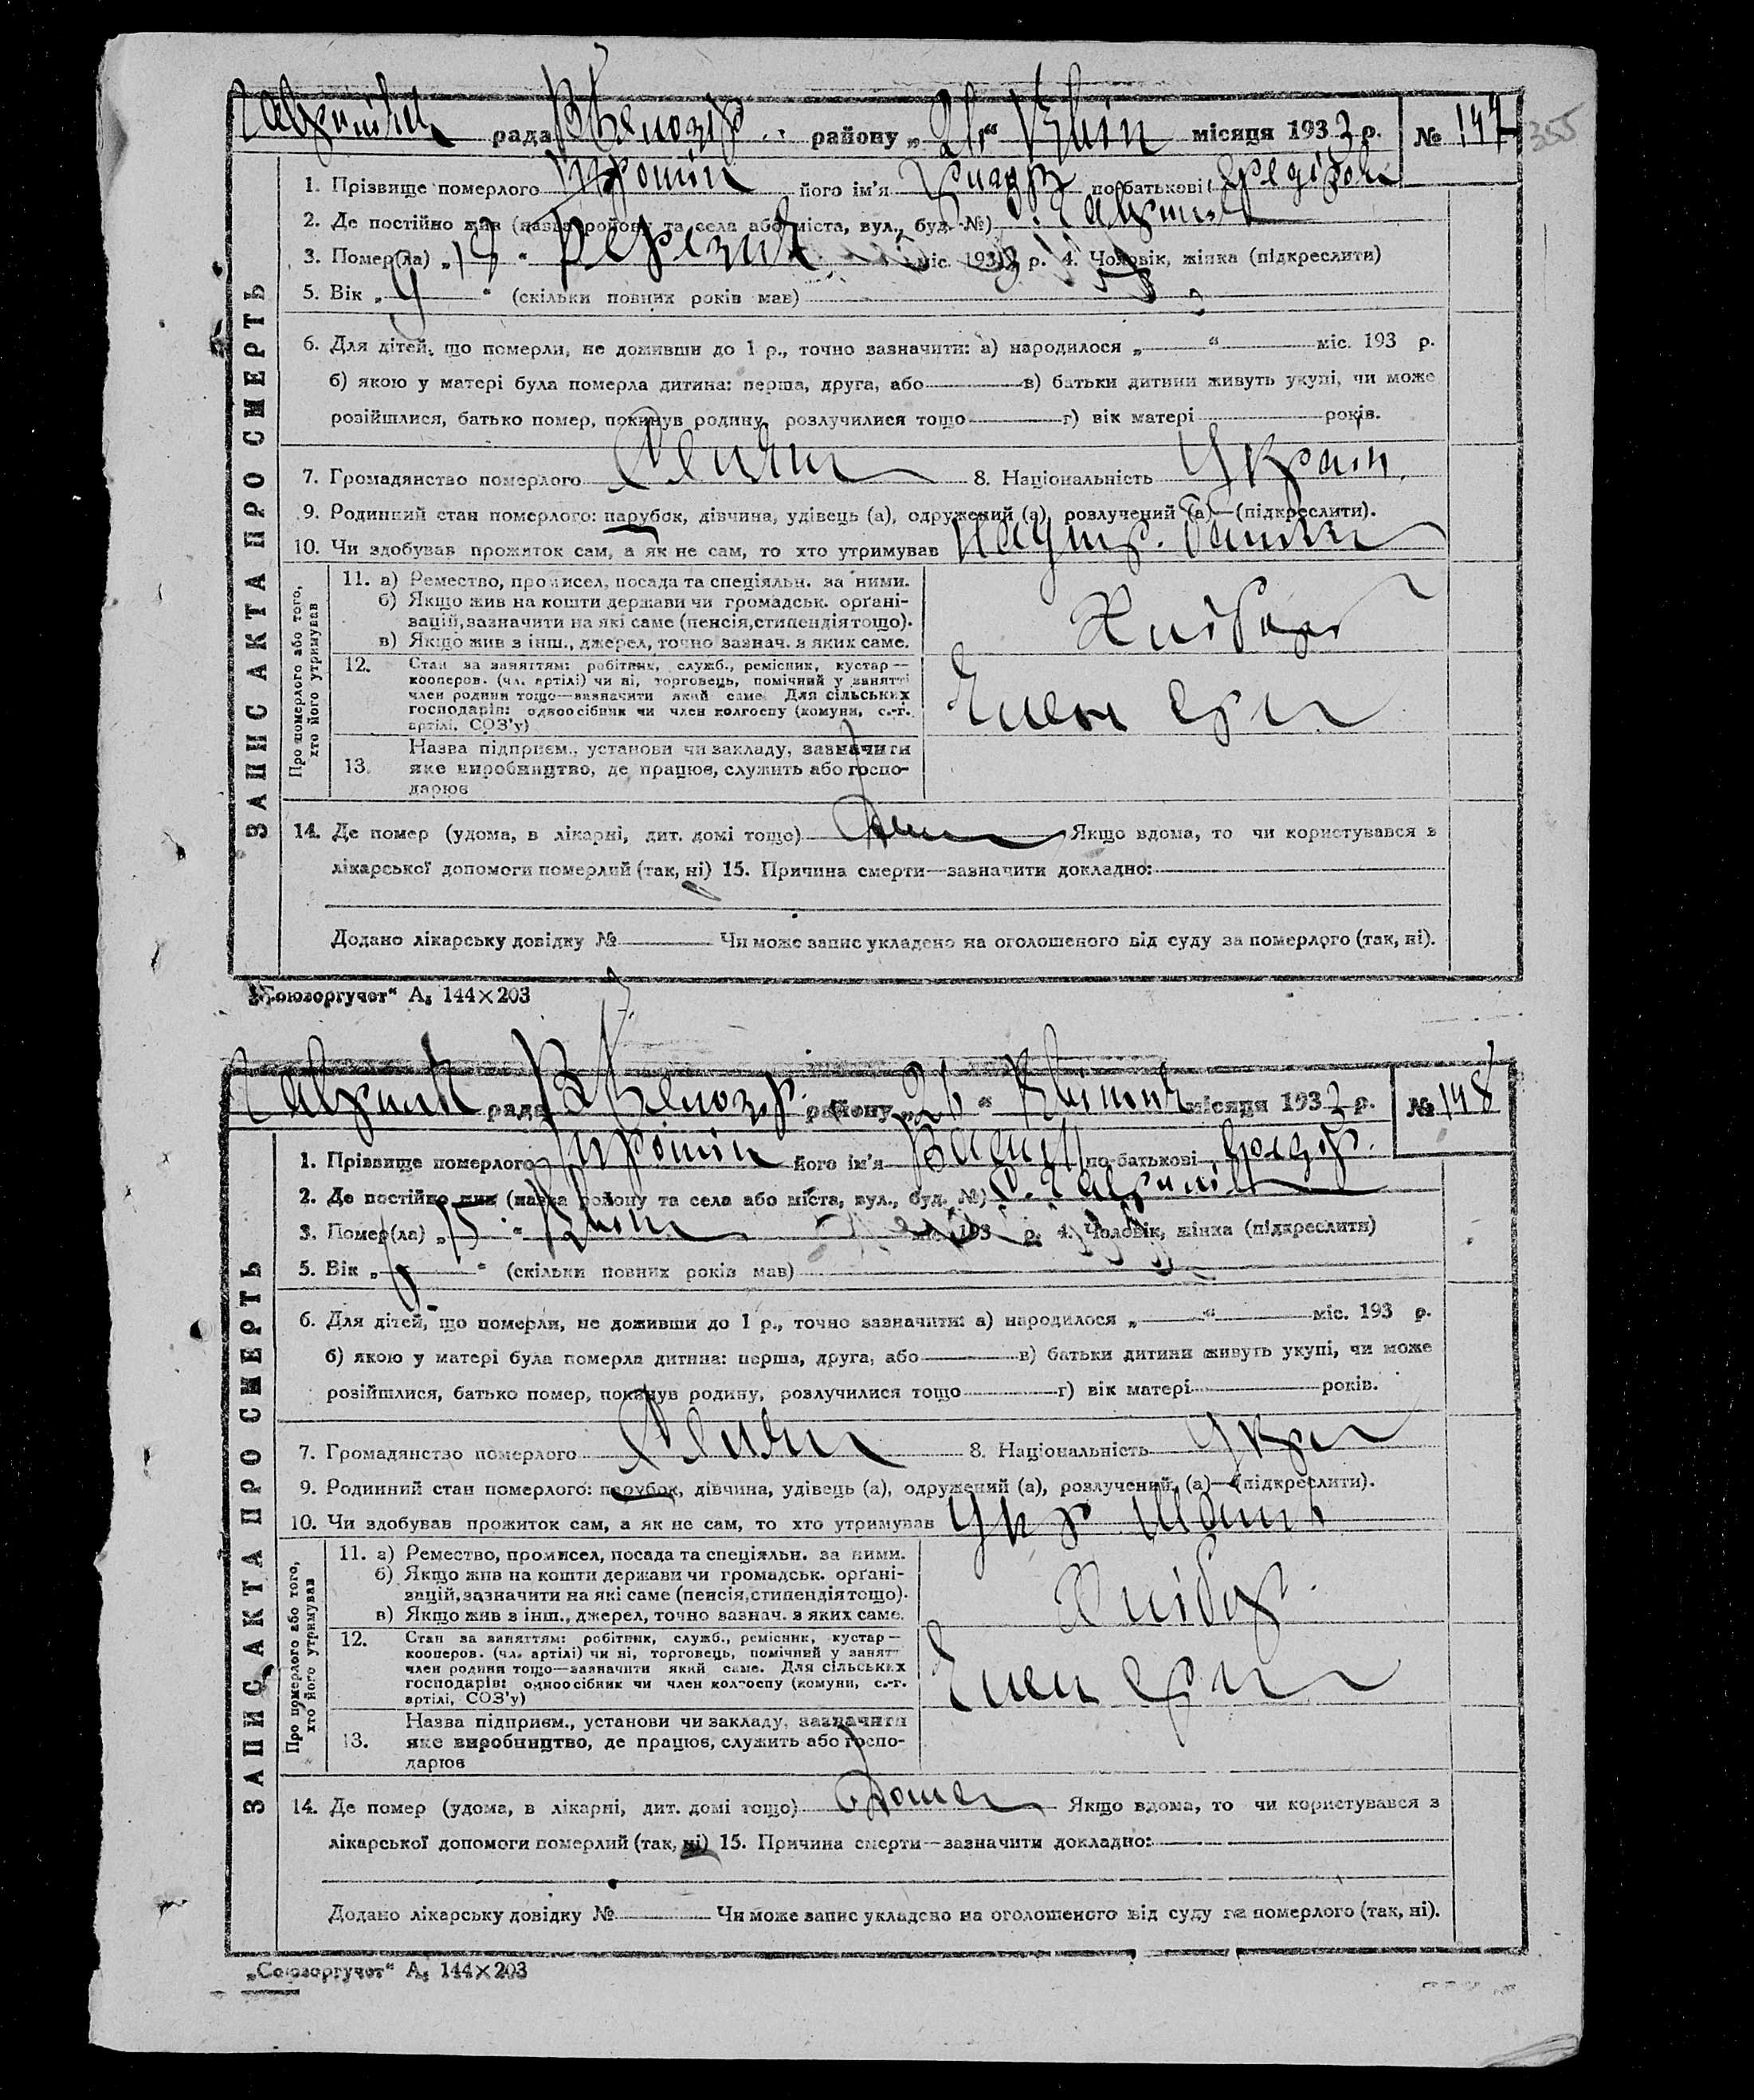 рада района „26“ місяця 1933 р. № 147
355
1. Прізвище померлого його ім'я по батькові
2. Де постійно жив (назва району та села або міста, вул., буд. №) с.
3. Помер(ла) „19“ березня міс. 1933 р. 4. Чоловік, жінка (підкреслити)
5. Вік „ “ (скільки повних років мав)
6. Для дітей, що померли, не доживши до 1 р., точно зазначити: а) народилося „ “ міс. 193 р.
б) якою у матері була померла дитина: перша, друга, або в) батьки дитини живуть укупі, чи може
розійшлися, батько помер, покинув родину, розлучилися тощо г) вік матері років.
7. Громадянство померлого 8. Національність Україн.
9. Родинний стан померлого: парубок, дівчина, удівець (а), одружений (а), розлучений (а)—(підкреслити).
10. Чи здобував прожиток сам, а як не сам, то хто утримував
11. а) Ремество, промисел, посада та спеціяльн. за ними.
б) Якщо жив на кошти держави чи громадськ. органі-
зацій, зазначити на які саме (пенсія, стипендія тощо).
в) Якщо жив з інш., джерел, точно зазнач. з яких саме.
Хлібороб
12. Стан за заняттям: робітник, служб., ремісник, кустар—
кооперов. (чл. артілі) чи ні, торговець, помічний у занятті
член родини тощо—зазначити який саме. Для сільських
господарів: одноосібник чи член колгоспу (комуни, с.-г.
артілі, СОЗ'у)
Член
13. Назва підприєм., установи чи закладу, зазначити
яке виробництво, де працює, служить або госпо-
дарює
Про померлого або того,
хто його утримував
ЗАПИС АКТА ПРО СМЕРТЬ
14. Де помер (удома, в лікарні, дит. домі тощо) Якщо вдома, то чи користувався з
лікарської допомоги померлий (так, ні) 15. Причина смерти—зазначити докладно:
Додано лікарську довідку № Чи може запис укладено на оголошеного від суду за померлого (так, ні).
„Союзоргучет“ А₅ 144×203
рада району „26“ місяця 1933 р. № 148
1. Прізвище померлого його ім'я по батькові
2. Де постійно жив (назва району та села або міста, вул., буд. №) с.
3. Помер(ла) „15“ міс. 193 р. 4. Чоловік, жінка (підкреслити)
5. Вік „ “ (скільки повних років мав)
6. Для дітей, що померли, не доживши до 1 р., точно зазначити: а) народилося „ “ міс. 193 р.
б) якою у матері була померла дитина: перша, друга, або в) батьки дитини живуть укупі, чи може
розійшлися, батько помер, покинув родину, розлучилися тощо г) вік матері років.
7. Громадянство померлого 8. Національність
9. Родинний стан померлого: парубок, дівчина, удівець (а), одружений (а), розлучений (а)—(підкреслити).
10. Чи здобував прожиток сам, а як не сам, то хто утримував
11. а) Ремество, промисел, посада та спеціяльн. за ними.
б) Якщо жив на кошти держави чи громадськ. органі-
зацій, зазначити на які саме (пенсія, стипендія тощо).
в) Якщо жив з інш., джерел, точно зазнач. з яких саме.
Хлібор.
12. Стан за заняттям: робітник, служб., ремісник, кустар—
кооперов. (чл. артілі) чи ні, торговець, помічний у занятт
член родини тощо—зазначити який саме. Для сільських
господарів: одноосібник чи член колгоспу (комуни, с.-г.
артілі, СОЗ'у)
Член
13. Назва підприєм., установи чи закладу, зазначити
яке виробництво, де працює, служить або госпо-
дарює
Про померлого або того,
хто його утримував
ЗАПИС АКТА ПРО СМЕРТЬ
14. Де помер (удома, в лікарні, дит. домі тощо) Якщо вдома, то чи користувався з
лікарської допомоги померлий (так, ні) 15. Причина смерти—зазначити докладно:
Додано лікарську довідку № Чи може запис укладено на оголошеного від суду за померлого (так, ні).
„Союзоргучет“ А₅ 144×203